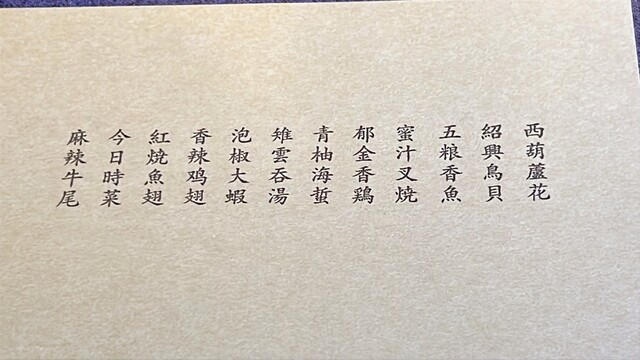 西葫蘆花
紹興鳥貝
五粮香魚
蜜汁叉焼
郁金香鶏
青柚海蜇
雉雲吞湯
泡椒大蝦
香辣鸡翅
紅焼魚翅
今日時菜
麻辣牛尾